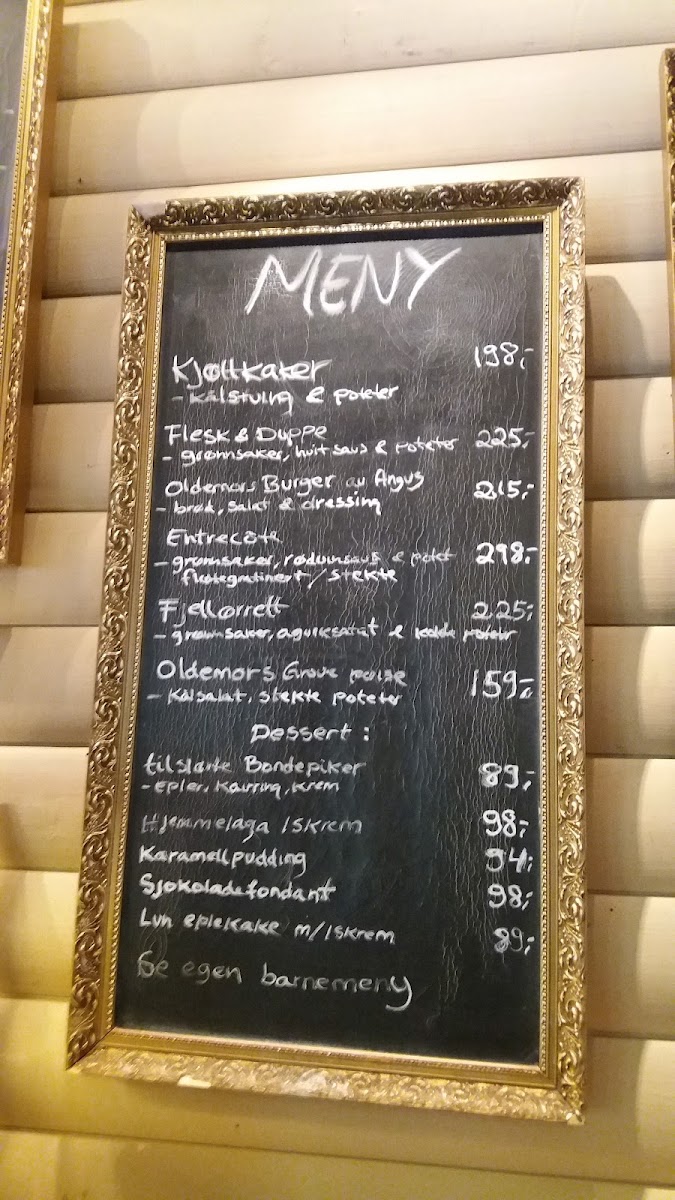 MENY
Kjøttkaker 198,-
- kålstuing & poteter
Flesk & Duppe 225,-
- grønnsaker, hvit saus & poteter
Oldemors Burger av Angus 215,-
- brød, salat & dressing
Entrecôte
- grønnsaker, rødvinsaus & potet 298,-
fløtegratinert/stekte
Fjellørrett 225,-
- grønnsaker, agurksalat & kokte poteter
Oldemors Grove pølse 159,-
- Kålsalat, stekte poteter
Dessert :
tilslørte Bondepiker 89,-
- epler, kavring, krem
Hjemmelaga Iskrem 98,-
Karamellpudding 94,-
Sjokoladefondant 98,-
Lun eplekake m/Iskrem 89,-
Se egen barnemeny